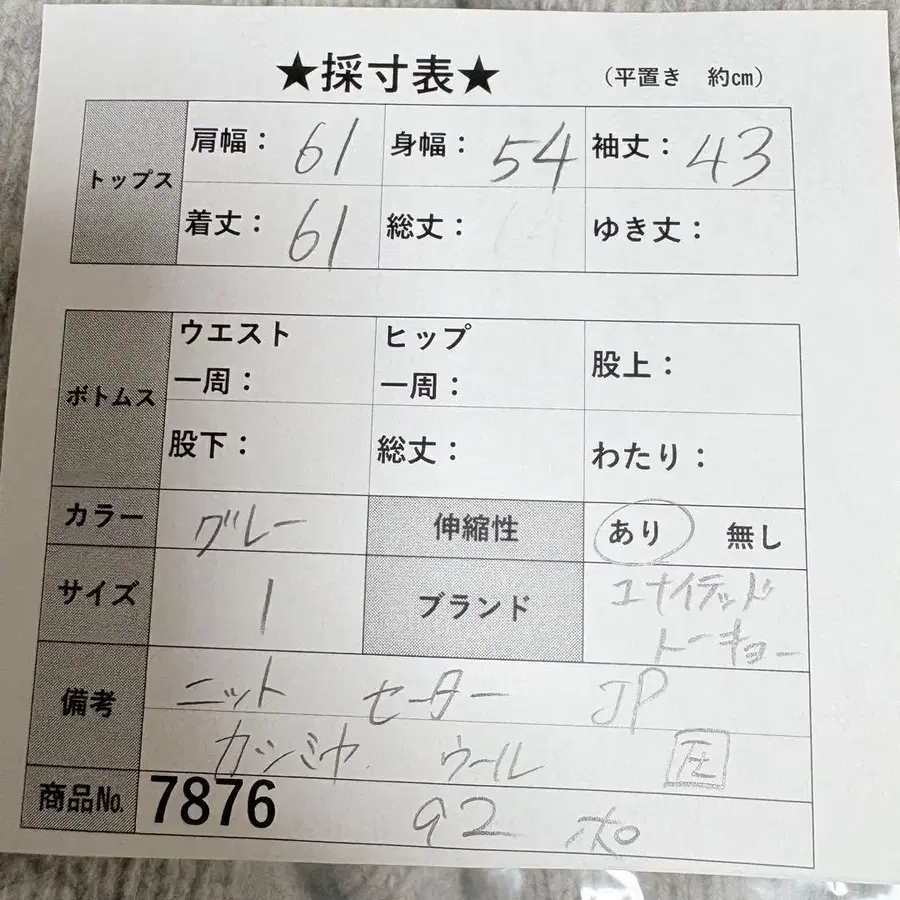 ★採寸表★ （平置き 約㎝）
トップス 肩幅： 61 身幅： 54 袖丈： 43
着丈： 61 総丈： ゆき丈：
ボトムス ウエスト一周： ヒップ一周： 股上：
股下： 総丈： わたり：
カラー グレー 伸縮性 あり 無し
サイズ 1 ブランド ユナイテッド
トーキョー
備考 ニット セーター JP
カシミヤ ウール 圧
商品No. 7876 92 ポ